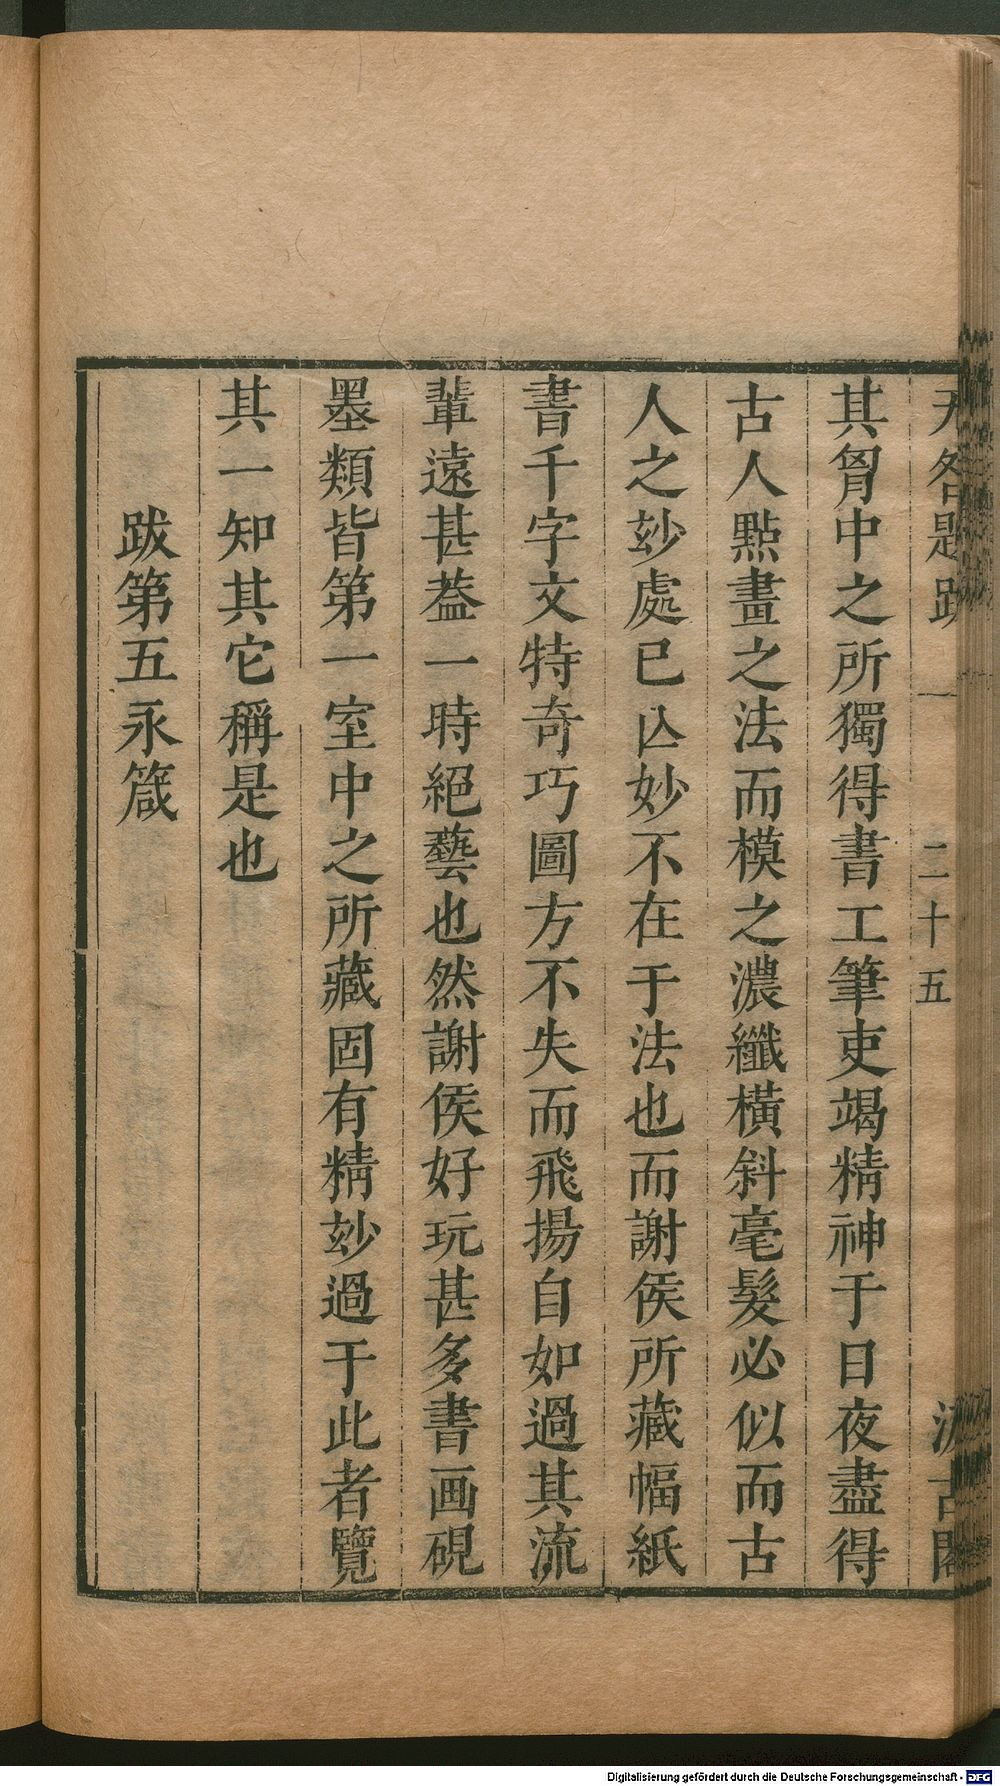 无咎題跋 一 二十五 汲古閣
其胷中之所獨得書工筆吏竭精神于日夜盡得
古人點畫之法而模之濃纖橫斜毫髮必似而古
人之玅處已亾妙不在于法也而謝侯所藏幅紙
書千字文特奇巧圖方不失而飛揚自如過其流
輩遠甚葢一時絕藝也然謝侯好玩甚多書画硯
墨類皆第一室中之所藏固有精玅過于此者覽
其一知其它稱是也
跋第五永箴
Digitalisierung gefördert durch die Deutsche Forschungsgemeinschaft - DFG